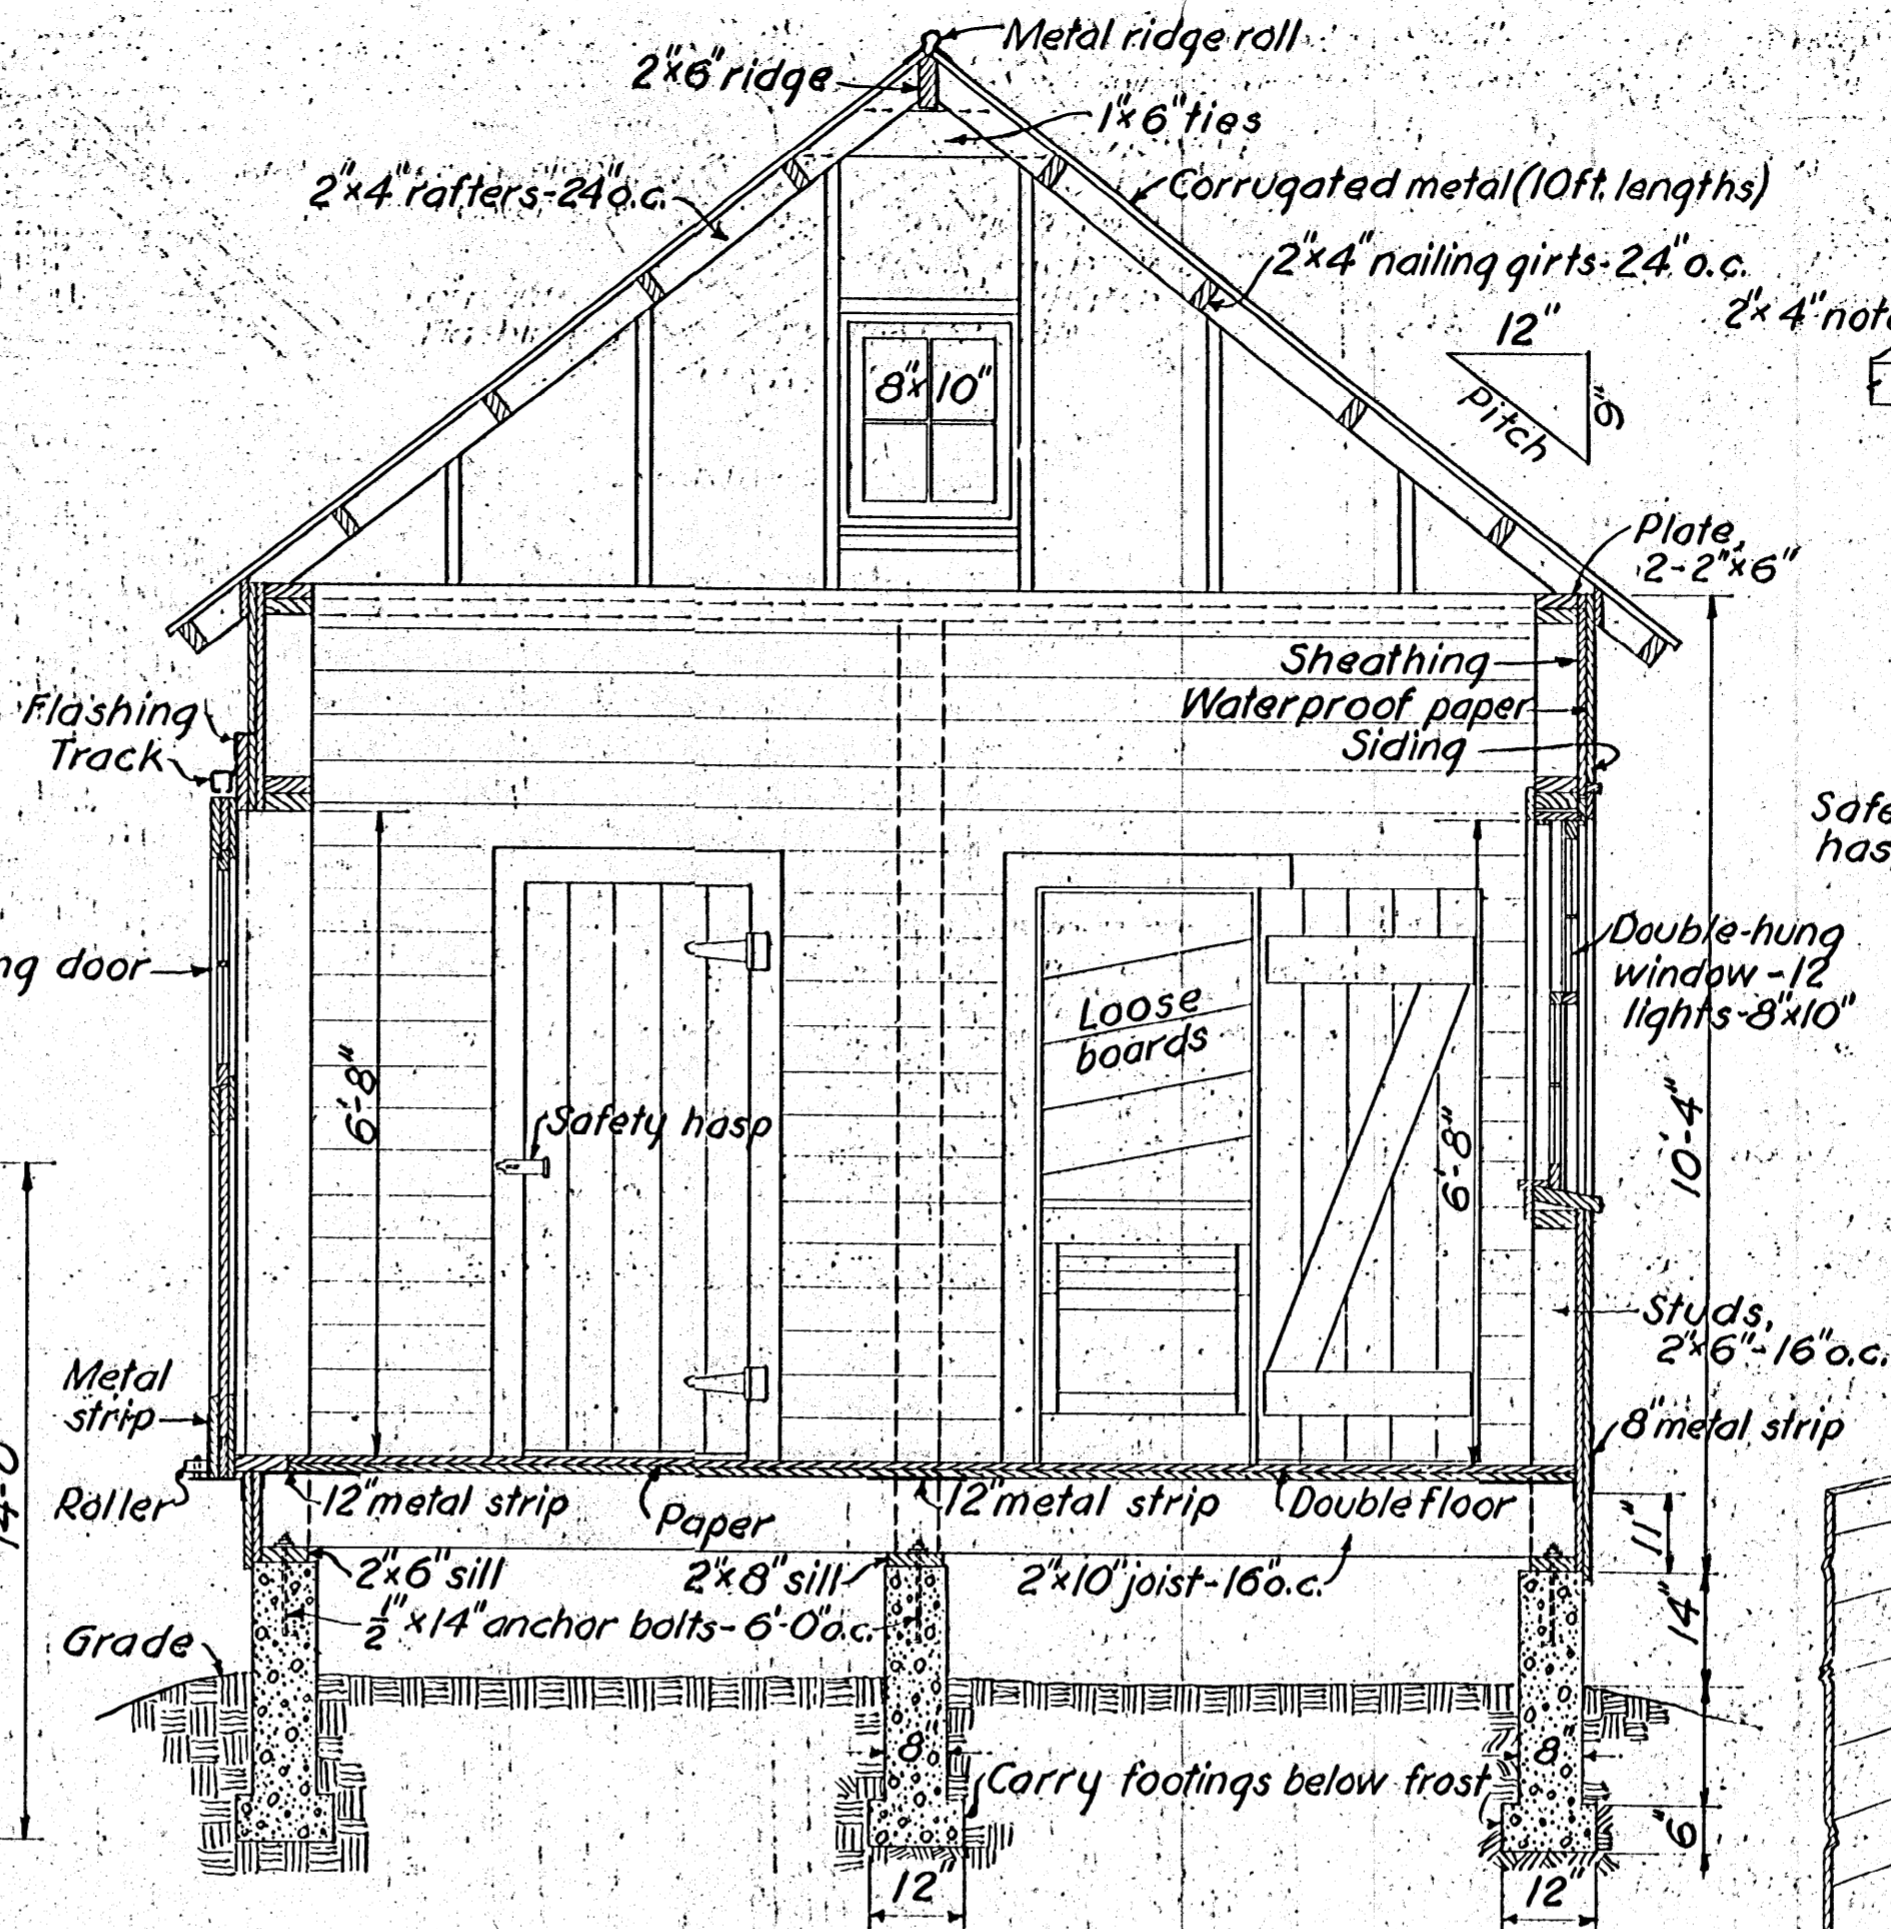 Metal ridge roll
2"x6" ridge
1"x6" ties
2"x4" rafters-24"o.c.
Corrugated metal (10ft. lengths)
2"x4" nailing girts-24"o.c.
2"x4"
12"
8"x10"
Pitch
Plate,
2-2"x6"
Sheathing
Flashing
Waterproof paper
Track
Siding
Double-hung
door
window-12
lights-8"x10"
Loose
boards
6'-8"
Safety hasp
6'-8"
10'-4"
Studs,
2"x6"-16"o.c.
Metal
strip
8" metal strip
Roller
12" metal strip
Paper
12" metal strip
Double floor
11"
2"x6" sill
2"x8" sill
2"x10" joist-16"o.c.
1/2"x14" anchor bolts-6'-0"o.c.
14"
Grade
8"
8"
Carry footings below frost
6"
12"
12"